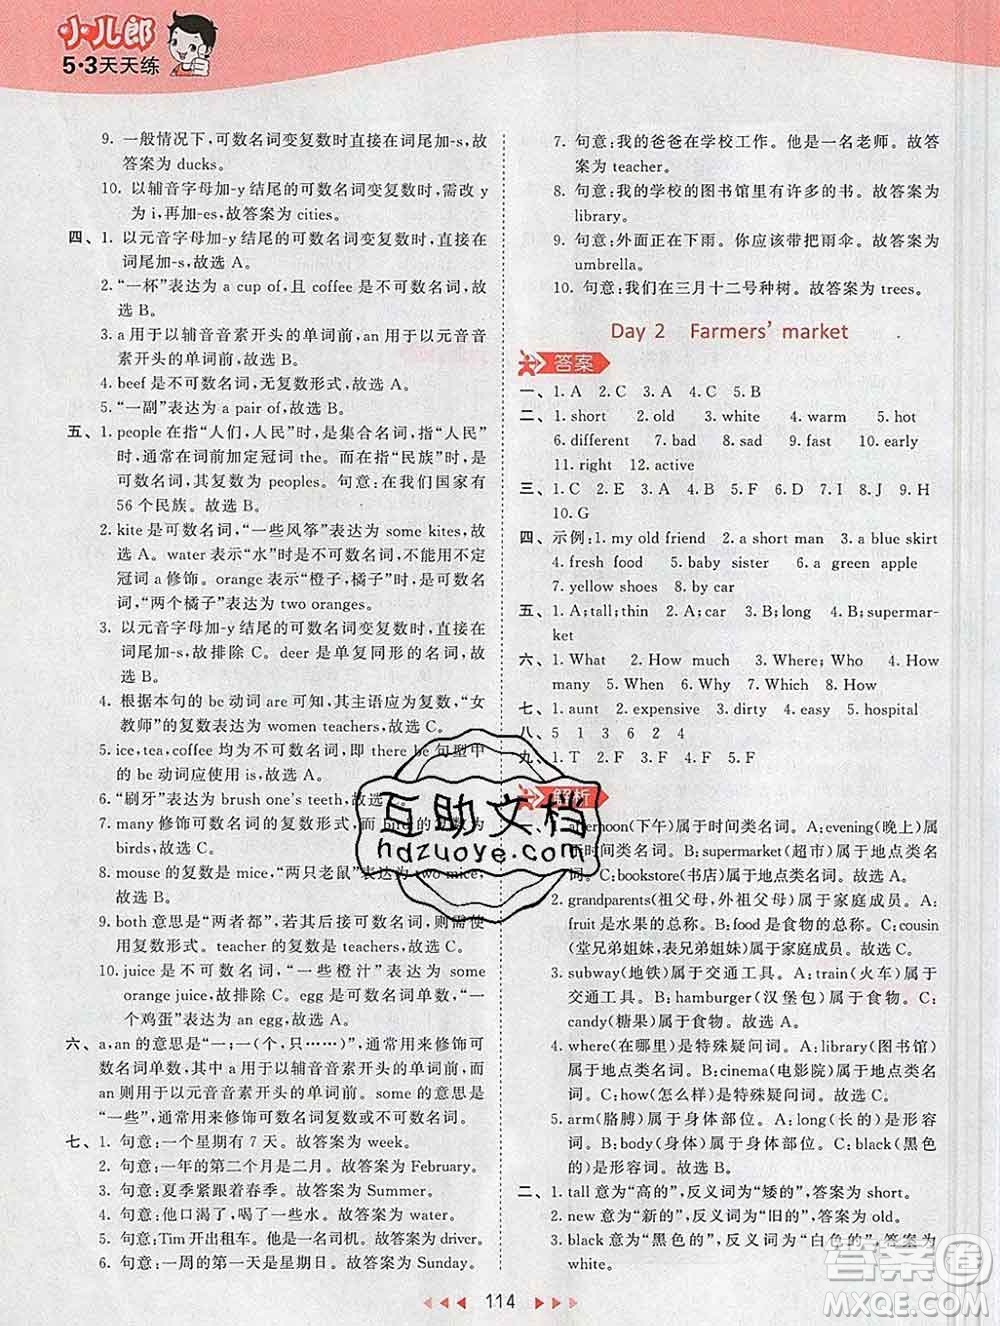 小儿郎
5·3天天练
9. 一般情况下,可数名词变复数时直接在词尾加-s,故
答案为 ducks。
10. 以辅音字母加-y 结尾的可数名词变复数时,需改 y
为 i,再加-es,故答案为 cities。
四、1. 以元音字母加-y 结尾的可数名词变复数时,直接在
词尾加-s,故选 A。
2. “一杯”表达为 a cup of,且 coffee 是不可数名词,故
选 B。
3. a 用于以辅音音素开头的单词前,an 用于以元音音
素开头的单词前,故选 B。
4. beef 是不可数名词,无复数形式,故选 A。
5. “一副”表达为 a pair of,故选 B。
五、1. people 在指“人们,人民”时,是集合名词,指“人民”
时,通常在词前加定冠词 the。而在指“民族”时,是
可数名词,其复数为 peoples。句意:在我们国家有
56 个民族。故选 B。
2. kite 是可数名词,“一些风筝”表达为 some kites,故
选 A。water 表示“水”时是不可数名词,不能用不定
冠词 a 修饰。orange 表示“橙子,橘子”时,是可数名
词,“两个橘子”表达为 two oranges。
3. 以元音字母加-y 结尾的可数名词变复数时,直接在
词尾加-s,故排除 C。deer 是单复同形的名词,故
选 A。
4. 根据本句的 be 动词 are 可知,其主语应为复数,“女
教师”的复数表达为 women teachers,故选 C。
5. ice,tea,coffee 均为不可数名词,即 there be 句型中
的 be 动词应使用 is,故选 A。
6. “刷牙”表达为 brush one's teeth,故选
7. many 修饰可数名词的复数形式,而 bird 的复数为
birds,故选 A。
8. mouse 的复数是 mice,“两只老鼠”表达为 two mice,
故选 C。
9. both 意思是“两者都”,若其后接可数名词,则需使
用复数形式。teacher 的复数是 teachers,故选 C。
10. juice 是不可数名词,“一些橙汁”表达为 some
orange juice,故排除 C。egg 是可数名词单数,“一
个鸡蛋”表达为 an egg,故选 A。
六、a,an 的意思是“一;一(个,只……)”,通常用来修饰可
数名词单数,其中 a 用于以辅音音素开头的单词前,而
an 则用于以元音音素开头的单词前。some 的意思是
“一些”,通常用来修饰可数名词复数或不可数名词。
七、1. 句意:一个星期有 7 天。故答案为 week。
2. 句意:一年的第二个月是二月。故答案为 February。
3. 句意:夏季紧跟着春季。故答案为 Summer。
4. 句意:他口渴了,喝了一些水。故答案为 water。
5. 句意:Tim 开出租车。他是一名司机。故答案为 driver。
6. 句意:一周的第一天是星期日。故答案为 Sunday。
7. 句意:我的爸爸在学校工作。他是一名老师。故答
案为 teacher。
8. 句意:我的学校的图书馆里有许多的书。故答案为
library。
9. 句意:外面正在下雨。你应该带把雨伞。故答案为
umbrella。
10. 句意:我们在三月十二号种树。故答案为 trees。
Day 2 Farmers' market
答案
一、1. A 2. C 3. A 4. C 5. B
二、1. short 2. old 3. white 4. warm 5. hot
6. different 7. bad 8. sad 9. fast 10. early
11. right 12. active
三、1. C 2. E 3. B 4. A 5. F 6. D 7. I 8. J 9. H
10. G
四、示例:1. my old friend 2. a short man 3. a blue skirt
4. fresh food 5. baby sister 6. a green apple
7. yellow shoes 8. race car
五、1. A;tall;thin 2. A;car 3. B;long 4. B;supermar-
ket
六、1. What 2. How much 3. Where;Who 4. How
many 5. When 6. Why 7. Which 8. How
七、1. aunt 2. expensive 3. dirty 4. easy 5. hospital
八、5 1 3 6 2 4
九、1. T 2. F 3. F 4. F 5. F
解析
一、1. afternoon(下午)属于时间类名词。A:evening(晚上)属
于时间类名词。B:supermarket(超市)属于地点类名
词。C:bookstore(书店)属于地点类名词。故选 A。
2. grandparents(祖父母,外祖父母)属于家庭成员。A:
fruit 是水果的总称。B:food 是食物的总称。C:cousin
(堂兄弟姐妹,表兄弟姐妹)属于家庭成员。故选 C。
3. subway(地铁)属于交通工具。A:train(火车)属于
交通工具。B:hamburger(汉堡包)属于食物。C:
candy(糖果)属于食物。故选 A。
4. where(在哪里)是特殊疑问词。A:library(图书馆)
属于地点类名词。B:cinema(电影院)属于地点类名
词。C:how(怎么样)是特殊疑问词。故选 C。
5. arm(胳膊)属于身体部位。A:long(长的)是形容
词。B:body(身体)属于身体部位。C:black(黑色
的)是形容词。故选 B。
二、1. tall 意为“高的”,反义词为“矮的”,答案为 short。
2. new 意为“新的”,反义词为“旧的”,答案为 old。
3. black 意为“黑色的”,反义词为“白色的”,答案为
white。
114
互助文档
hdzuoye.com
答案圈
MXQE.COM